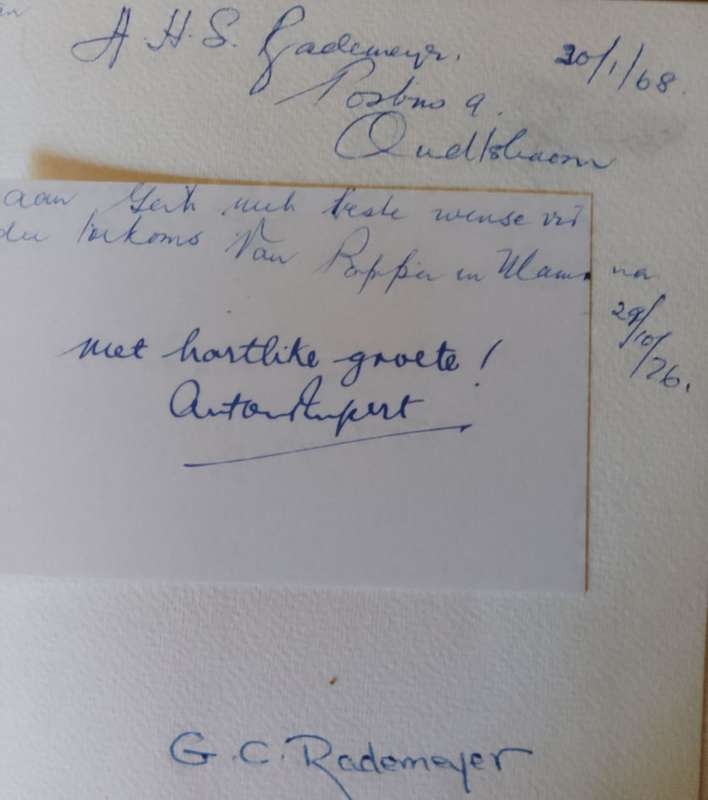 A. H. S. Rademeyer. 30/1/68.
Posbus 9.
Oudtshoorn
aan met beste wense vir
die toekoms Van Pappa en Mama
29/10/76.
met hartlike groete!
Anton Rupert
G. C. Rademeyer